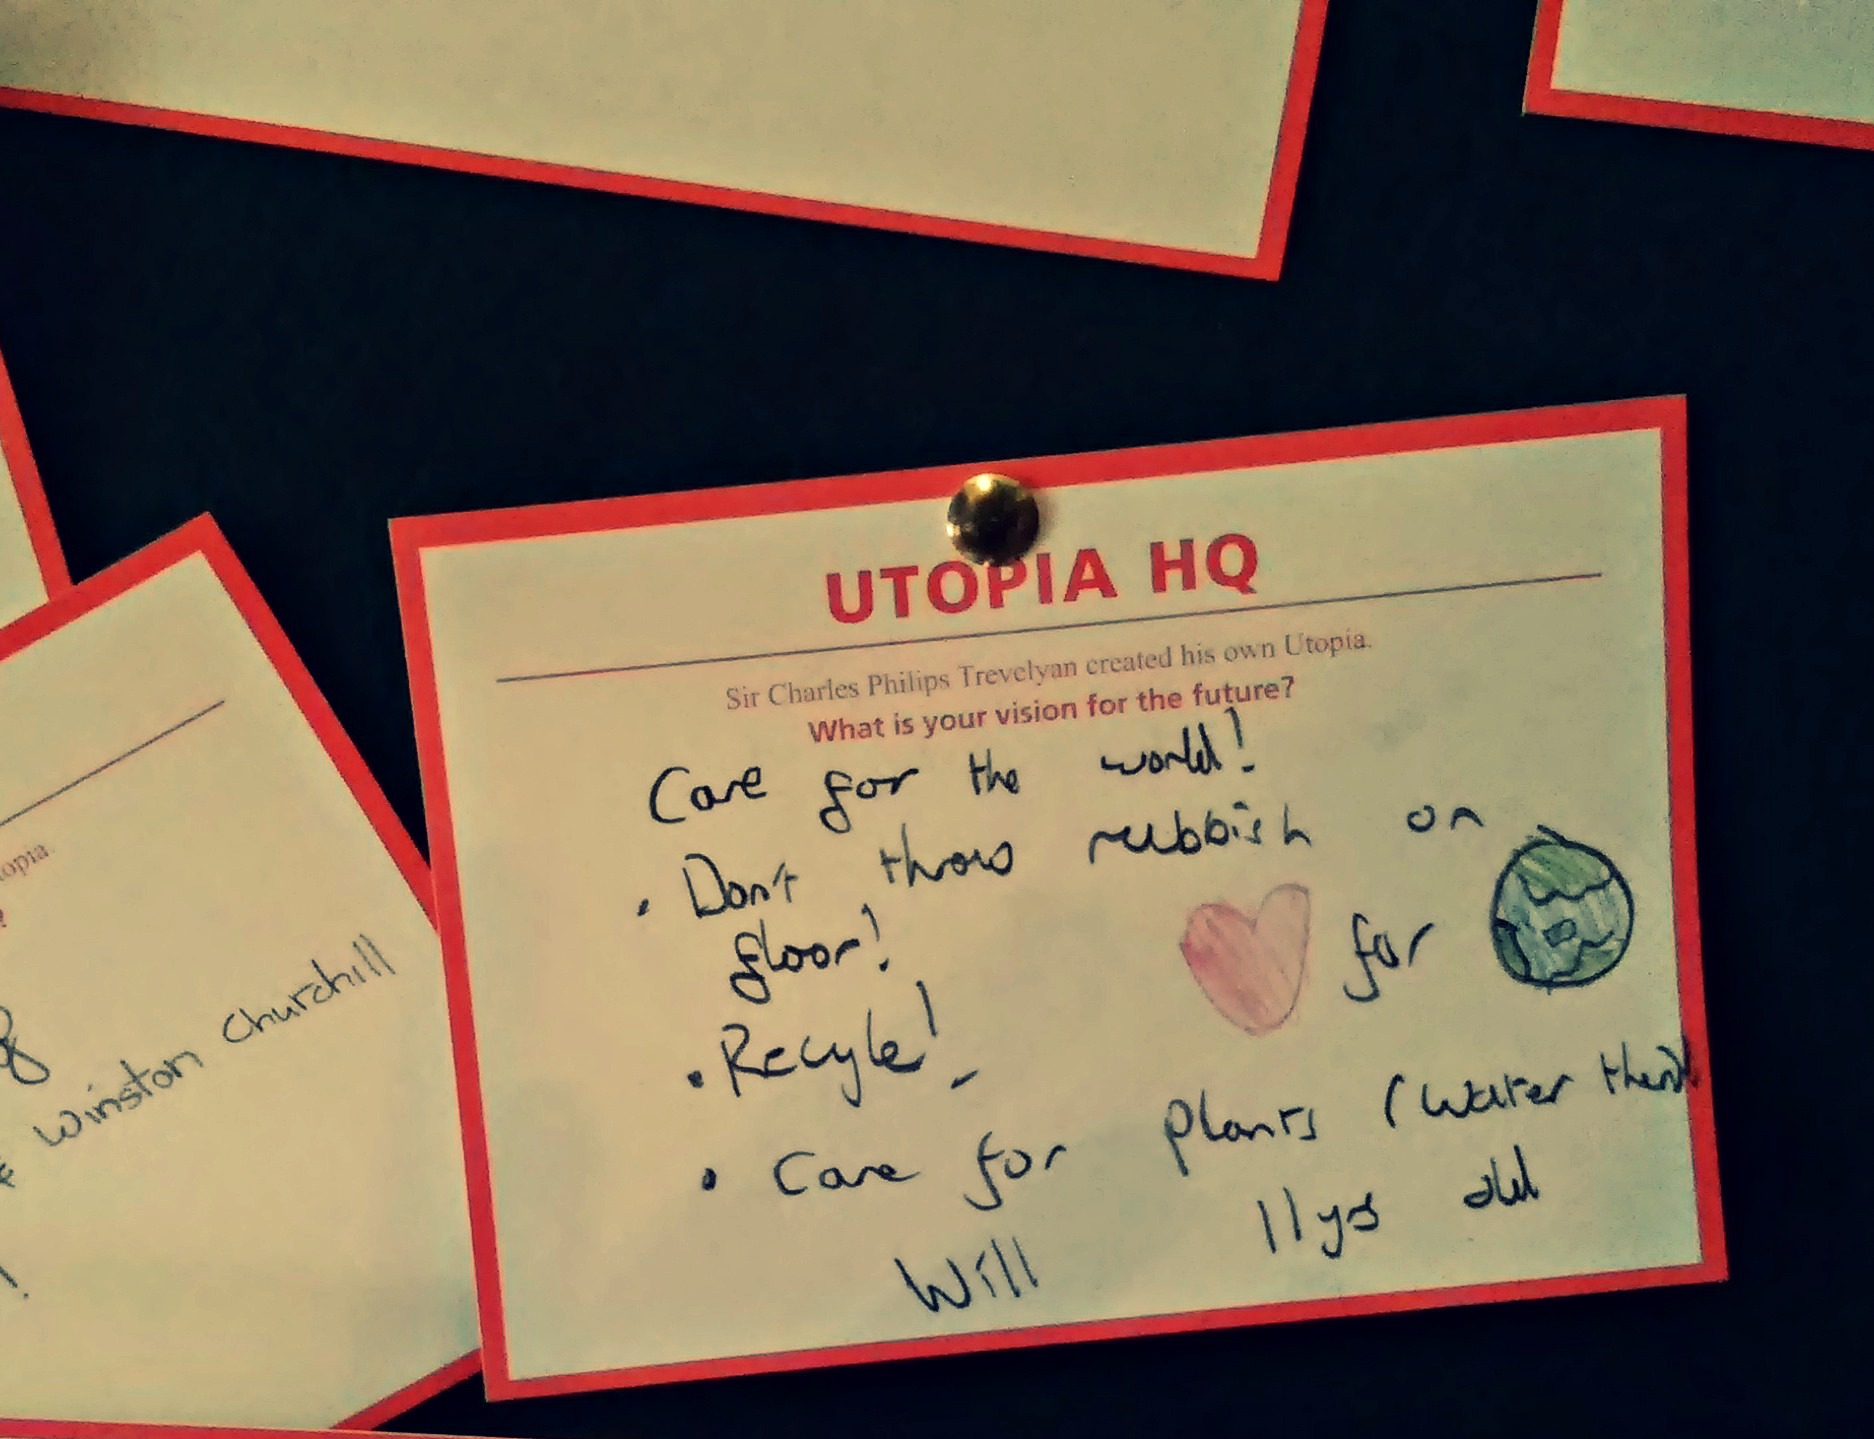 UTOPIA HQ
Sir Charles Philips Trevelyan created his own Utopia.
What is your vision for the future?
Care for the world!
• Dont throw rubbish on
floor!
for
• Recyle!
• Care for plants (water them)
Will 11 yrs old
opia
?
Winston Churchill